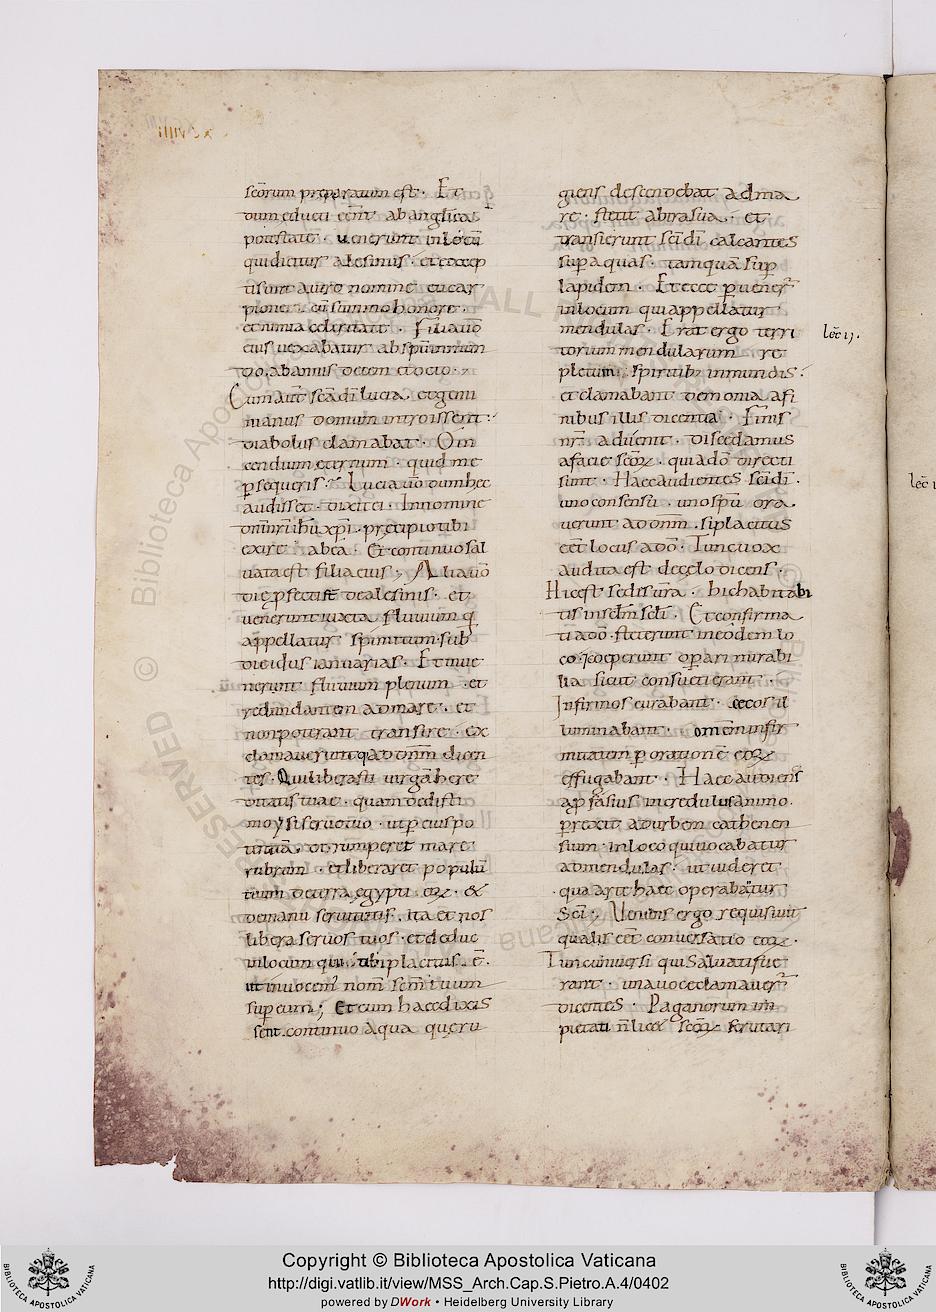 x VIIII
sc̄orum preparatum est. Et
dum educti eēnt ab anglica
potestate. uenerunt in locū
qui dicitur alesinis. et excep
ti sunt a uiro nomine eucar
pione. cū summo honore.
et nimia claritate. Filia u̅o
eius uexabatur ab spū inmun
do. ab annis decem et octo.
Cum aūt sc̄a dī lucia. et gemi
nianus domum introissent:
diabolus clamabat. O in
cendium eternum. quid me
ꝑsequeris; Lucia u̅o dum hęc
audisset. dixit ei. In nomine
dn̄i nr̄i ihū xp̄i. pręcipio tibi
exire ab ea. Et continuo sal
uata est filia eius; Alia u̅o
die ꝑfecti st̄ de alesinis. et
uenerunt iuxta fluuium q̄
appellatur spinitum. sub
die idus ianuarias. Et inue
nerunt fluuium plenum. et
redundantem ad mare. et
non poterant transire. ex
clamauerunt q̄ ad dn̄m dicen
tes. Qui liberasti uirgā here
ditatis tuae. quam dedisti
moysi seruo tuo. ut ꝑ eius po
tentiā. ut rumperet mare
rubrum. et liberaret populū
tuum de terra egypti eoꝝ. &
de manu seruitutis. ita et nos
libera seruos tuos. et deduc
in locum qui tibi placitus. ē.
ut inuocem̄ nom̄ sc̄m tuum
sup eum; Et cum haec dixis
sent. continuo aqua quę ru
giens descendebat ad ma
re. stetit ab ira sua. et
transierunt sc̄i dī calcantes
sup aquas. tamquā sup
lapidem. Et ecce ꝑuener̄
in locum qui appellatur
mendulas. Erat ergo terri
torium mendularum re
pletum. spiritib; inmundis.
et clamabant demonia a fi
nibus illis dicentia. Finis
nr̄ aduenit. discedamus
a facie sc̄oꝝ. qui a dō directi
sunt. Haec audientes sc̄i dī.
uno consensu. uno spū ora
uerunt ad dn̄m. si placitus
eēt locus a dō. Tunc uox
audita est de cęlo dicens.
Hic est sedis ura. hic habitabi
tis in sc̄lm sc̄li. Et confirma
ti a dō. steterunt in eodem lo
co. et coeperunt oꝑari mirabi
lia sicut consueti erant.
Infirmos curabant. cęcos il
luminabant. omēm infir
mitatem ꝑ orationē eoꝝ
effugabant. Haec audiens
apofasius incredulus animo.
ꝑrexit ad urbem cathenen
sium. in loco qui uocabatur
ad mendulas. ut uideret
qua arte haec operabatur
sc̄i. Veniens ergo requisiuit
qualis eēt conuersatio eoꝝ.
Tunc uniuersi qui saluati fue
rant. una uoce clamauer̄
dicentes. Paganorum im
pietati n̄ licet sc̄oꝝ scrutari
lec̄ ij.
lec̄
Copyright © Biblioteca Apostolica Vaticana
http://digi.vatlib.it/view/MSS_Arch.Cap.S.Pietro.A.4/0402
powered by DWork • Heidelberg University Library